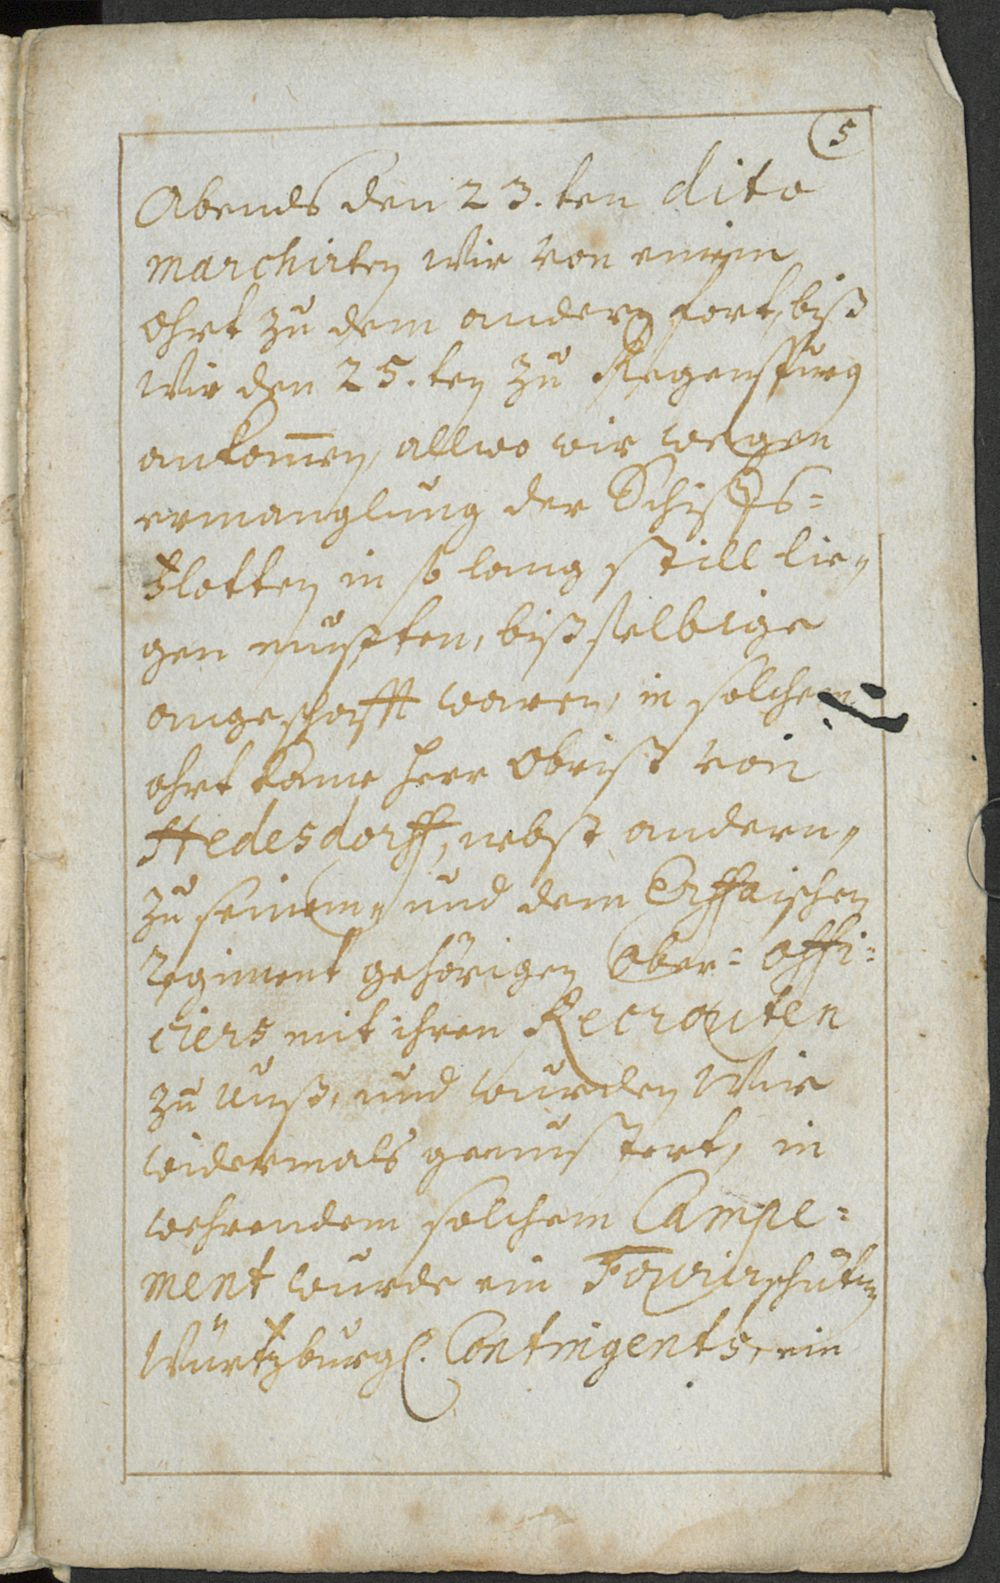 5
Abends den 23.ten dito
marchirten Wir von einem
ohrt zu dem andern fort, biß
Wir den 25.ten zu Regenspurg
ankom̄en, allwo wir wegen
ermanglung der Schiffs=
Flotten in so lang still lie„
gen musten, biß selbige
angeschafft waren, in solchem
ohrt kame Herr Obrist von
Hedesdorff, nebst andern„
zu seinem„ und dem Erffaischen
Regiment gehörigen Ober= Offi=
ciers mit ihren Recrouten
zu unß, und wurden Wir
widermals gemustert, in
wehrendem solchem Campe=
ment wurde ein Fourirschütz
Würtzburgl. Contingents, ein